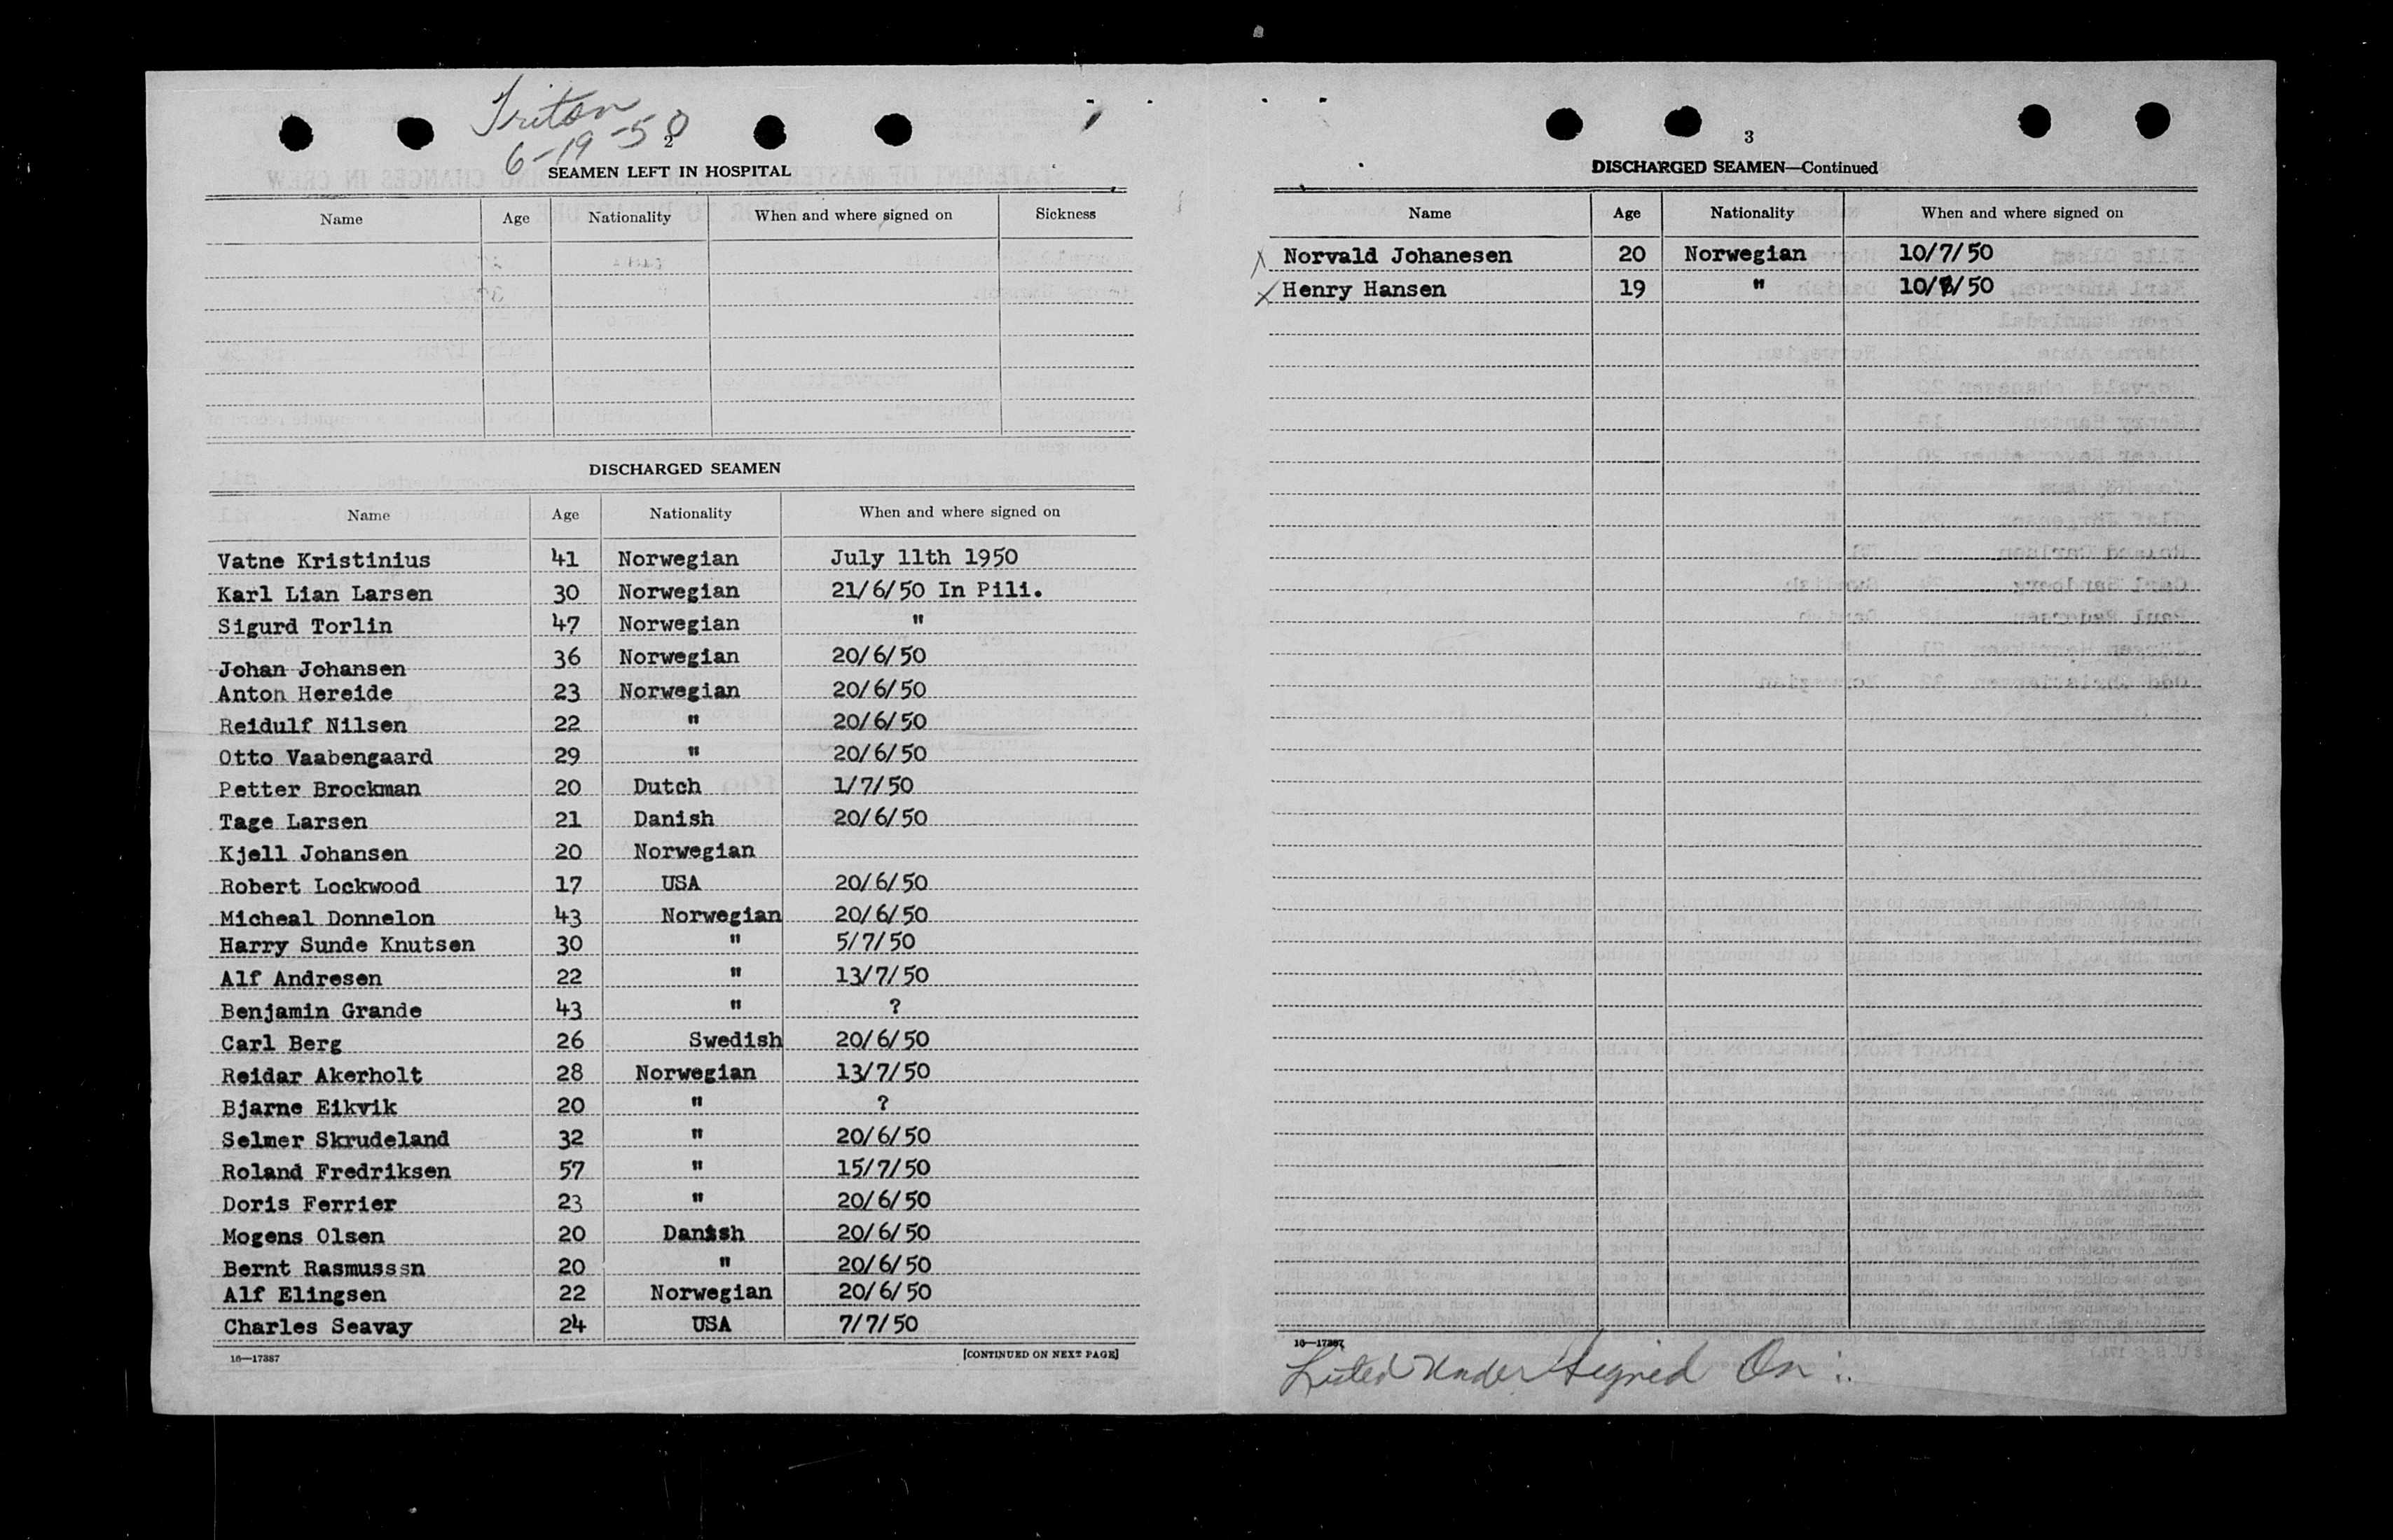 Triton
6-19-50
2
SEAMEN LEFT IN HOSPITAL
Name Age Nationality When and where signed on Sickness
DISCHARGED SEAMEN
Name Age Nationality When and where signed on
Vatne Kristinius 41 Norwegian July 11th 1950
Karl Lian Larsen 30 Norwegian 21/6/50 In Pili.
Sigurd Torlin 47 Norwegian "
Johan Johansen 36 Norwegian 20/6/50
Anton Hereide 23 Norwegian 20/6/50
Reidulf Nilsen 22 " 20/6/50
Otto Vaabengaard 29 " 20/6/50
Petter Brockman 20 Dutch 1/7/50
Tage Larsen 21 Danish 20/6/50
Kjell Johansen 20 Norwegian
Robert Lockwood 17 USA 20/6/50
Micheal Donnelon 43 Norwegian 20/6/50
Harry Sunde Knutsen 30 " 5/7/50
Alf Andresen 22 " 13/7/50
Benjamin Grande 43 " ?
Carl Berg 26 Swedish 20/6/50
Reidar Akerholt 28 Norwegian 13/7/50
Bjarne Eikvik 20 " ?
Selmer Skrudeland 32 " 20/6/50
Roland Fredriksen 57 " 15/7/50
Doris Ferrier 23 " 20/6/50
Mogens Olsen 20 Danish 20/6/50
Bernt Rasmusssn 20 " 20/6/50
Alf Elingsen 22 Norwegian 20/6/50
Charles Seavay 24 USA 7/7/50
16—17387 [CONTINUED ON NEXT PAGE]
3
DISCHARGED SEAMEN—Continued
Name Age Nationality When and where signed on
X Norvald Johanesen 20 Norwegian 10/7/50
X Henry Hansen 19 " 10/ /50
16—17387
Listed Under Signed On :.